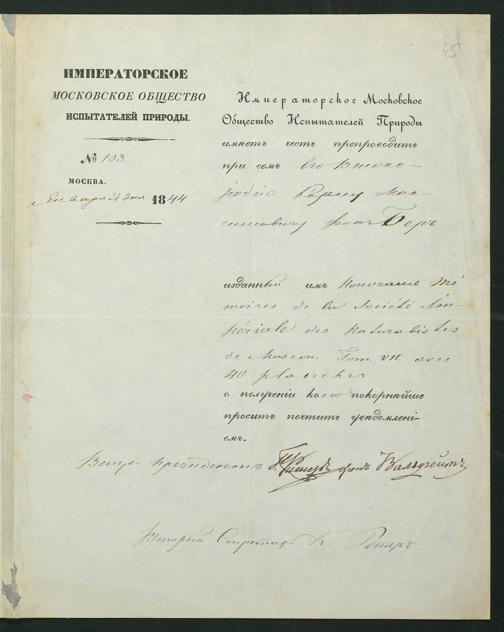 45
ИМПЕРАТОРСКОЕ
МОСКОВСКОЕ ОБЩЕСТВО
ИСПЫТАТЕЛЕЙ ПРИРОДЫ.
№ 133.
МОСКВА.
Января 24 дня 1844
Императорское Московское
Общество Испытателей Природы
имѣетъ честь препроводить
при семъ Его Высоко-
родію Карлу Мак-
симовичу фонъ Беръ
изданный имъ Nouveaux Mé-
moires de la Société Im-
périale des Naturalistes
de Moscou. Tom VII. avec
40 planches
о полученіи коего покорнѣйше
проситъ почтить увѣдомлені-
емъ.
Вице-президентъ Фишеръ фонъ Вальдгеймъ
Вторый Секретарь К. Ренаръ.